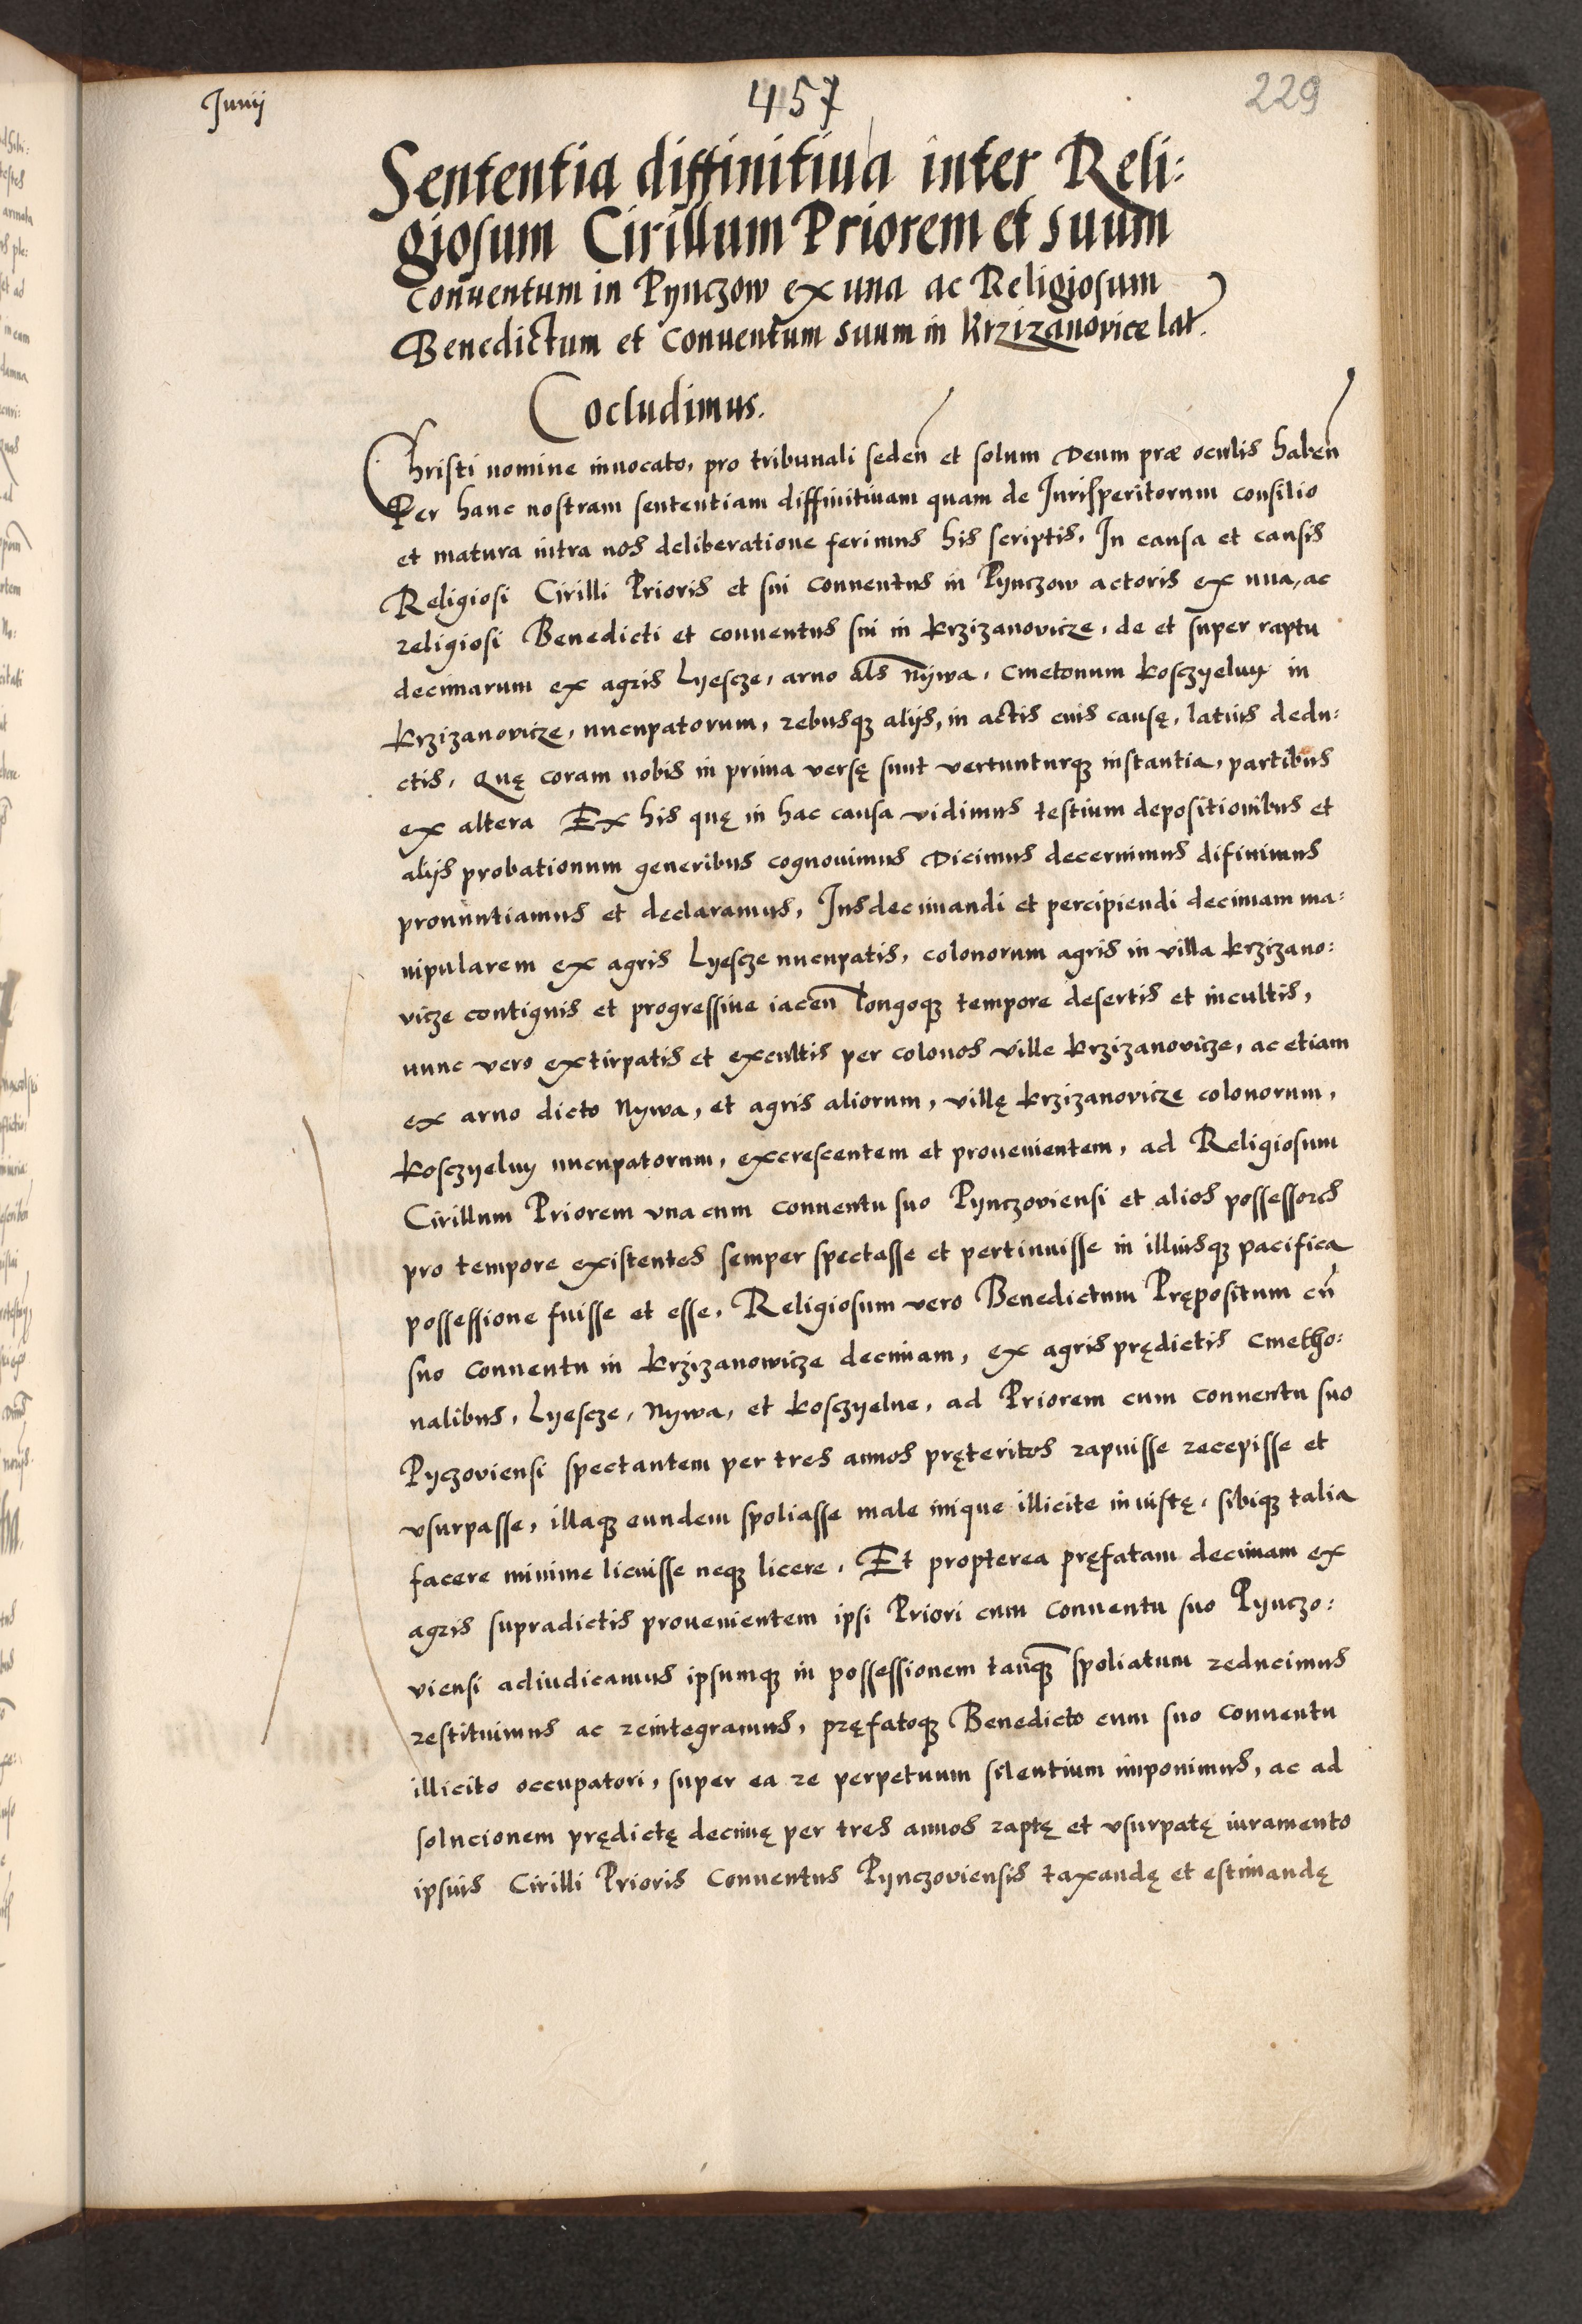 Junij
457
229
Sententia diffinitiua inter Reli:
giosum Cirillum Priorem et suum
conuentum in Pynczow ex una ac Religiosum
Benedictum et conuentum suum in Krzizanovice lat.
Cocludimus.
Christi nomine inuocato, pro tribunali seden et solum Deum præ oculis haben
Per hanc nostram sententiam diffinitiuam quam de Jurisperitorum consilio
et matura intra nos deliberatione ferimus his scriptis, In causa et causis
Religiosi Cirilli Prioris et sui conuentus in Pynczow actoris ex una, ac
religiosi Benedicti et conuentus sui in krzizanovicze, de et super raptu
decimarum ex agris Lyescze, aruo als nywa, cmetonum kosczyeluy in
krzizanovicze, nucupatorum, rebusq; alijs, in actis euis causę, latius dedu:
ctis, Quę coram nobis in prima versę sunt vertunturq; instantia, partibus
ex altera Ex his quę in hac causa vidimus testium depositionibus et
alijs probationum generibus cognouimus Dicimus decernimus difinimus
pronuntiamus et declaramus, Jus decimandi et percipiendi decimam ma:
nipularem ex agris Lyescze nucupatis, colonorum agris in villa krzizano:
vicze contiguis et progressiue iacen longoq; tempore desertis et incultis,
nunc vero extirpatis et excultis per colonos ville krzizanovicze, ac etiam
ex aruo dicto Nywa, et agris aliorum, villę krzizanovicze colonorum,
kosczyeluy nucupatorum, excrescentem et prouenientem, ad Religiosum
Cirillum Priorem vna cum conuentu suo Pynczoviensi et alios possessores
pro tempore existentes semper spectasse et pertinuisse in illiusq; pacifica
possessione fuisse et esse, Religiosum vero Benedictum Prępositum cu
suo conuentu in krzizanowicze decimam, ex agris prędictis cmetho:
nalibus, Lyescze, Nywa, et kosczyelne, ad Priorem cum conuentu suo
Pyczoviensi spectantem per tres annos pręteritos rapuisse recepisse et
vsurpasse, illaq; eundem spoliasse male inique illicite iniustę, sibiq; talia
facere minime licuisse neq; licere, Et propterea pręfatam decimam ex
agris supradictis prouenientem ipsi Priori cum conuentu suo Pynczo:
viensi adiudicamus ipsumq; in possessionem tanq; spoliatum reducimus
restituimus ac reintegramus, pręfatoq; Benedicto cum suo conuentu
illicito occupatori, super ea re perpetuum silentium imponimus, ac ad
solucionem prędictę decimę per tres annos raptę et vsurpatę iuramento
ipsius Cirilli Prioris Conuentus Pynczoviensis taxandę et estimandę